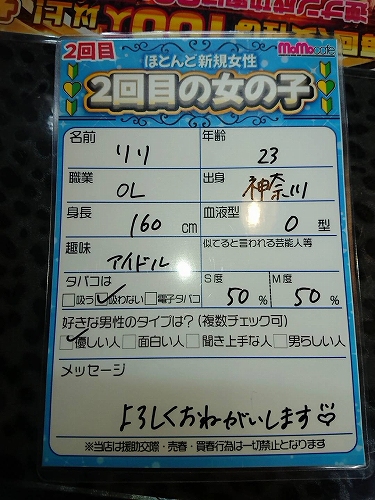 2回目
MoMocafe
ほとんど新規女性
2回目の女の子
名前
リリ
年齢
23
職業
OL
出身
神奈川
身長
160 cm
血液型
O 型
趣味
アイドル
似てると言われる芸能人等
タバコは
吸う 吸わない 電子タバコ
S度
50 %
M度
50 %
好きな男性のタイプは?(複数チェック可)
優しい人 面白い人 聞き上手な人 男らしい人
メッセージ
よろしくおねがいします
※当店は援助交際・売春・買春行為は一切禁止となります